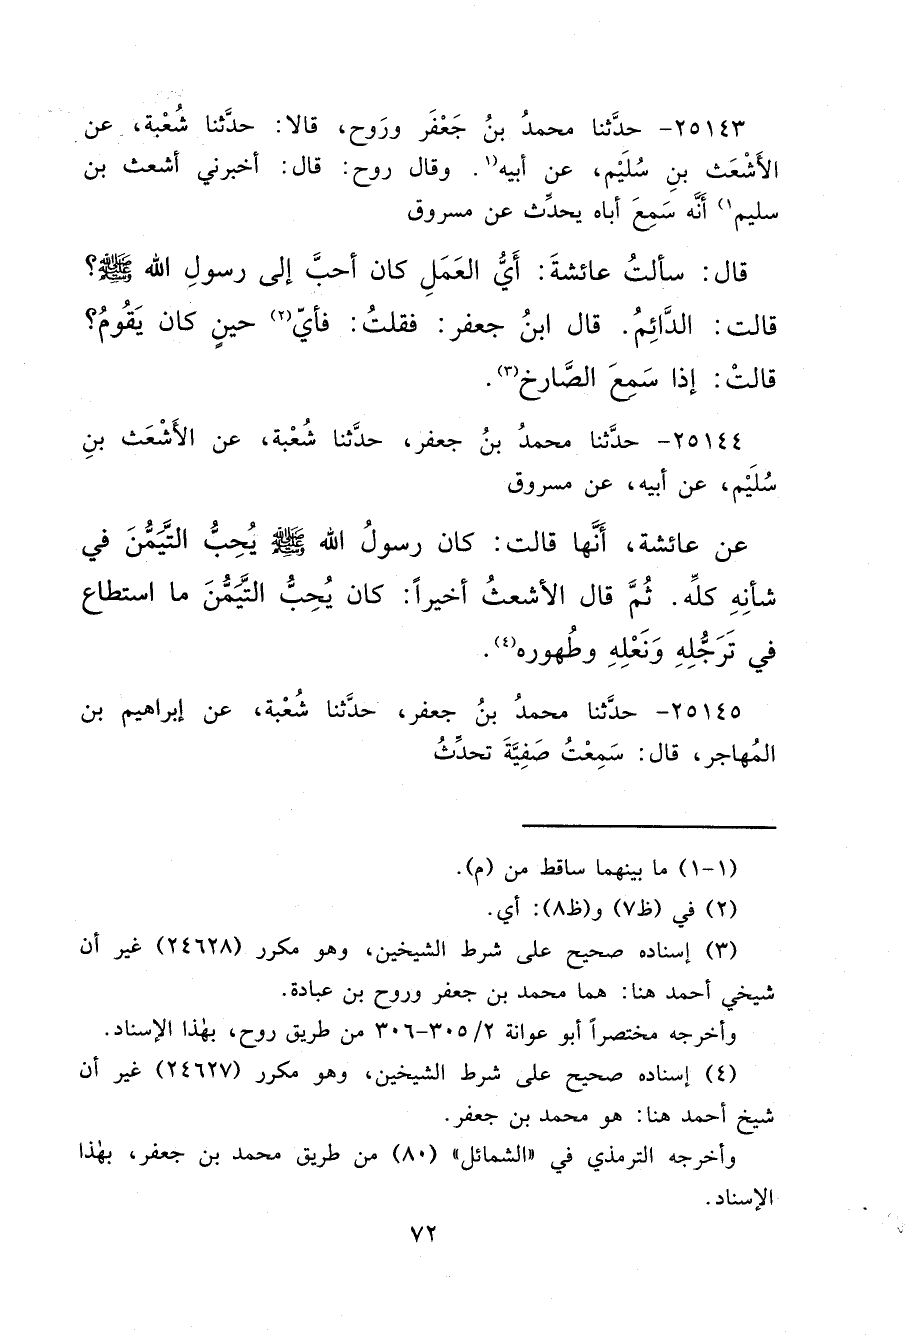 ٢٥١٤٣- حدَّثنا محمدُ بنُ جَعْفَر ورَوح، قالا: حدَّثنا شُعْبة، عن
الأَشْعَث بنِ سُلَيْم، عن أبيه(١. وقال روح: قال: أخبرني أشعث بن
سليم١) أنَّه سَمِعَ أباه يحدِّث عن مسروق
قال: سألتُ عائشةَ: أَيُّ العَمَلِ كان أحبَّ إلى رسولِ الله ﷺ؟
قالت: الدَّائِمُ. قال ابنُ جعفر: فقلتُ: فأيّ(٢) حينٍ كان يَقُومُ؟
قالتْ: إذا سَمِعَ الصَّارخ(٣).
٢٥١٤٤- حدَّثنا محمدُ بنُ جعفر، حدَّثنا شُعْبة، عن الأَشْعَث بنِ
سُلَيْم، عن أبيه، عن مسروق
عن عائشة، أَنَّها قالت: كان رسولُ الله ﷺ يُحِبُّ التَّيَمُّنَ في
شأنِهِ كلِّه. ثُمَّ قال الأشعثُ أخيراً: كان يُحِبُّ التَّيَمُّنَ ما استطاع
في تَرَجُّلِهِ وَنَعْلِهِ وطُهوره(٤).
٢٥١٤٥- حدَّثنا محمدُ بنُ جعفر، حدَّثنا شُعْبة، عن إبراهيم بن
المُهاجر، قال: سَمِعْتُ صَفِيَّةَ تحدِّثُ
(١-١) ما بينهما ساقط من (م).
(٢) في (ظ٧) و(ظ٨): أي.
(٣) إسناده صحيح على شرط الشيخين، وهو مكرر (٢٤٦٢٨) غير أن
شيخي أحمد هنا: هما محمد بن جعفر وروح بن عبادة.
وأخرجه مختصراً أبو عوانة ٣٠٥/٢-٣٠٦ من طريق روح، بهٰذا الإسناد.
(٤) إسناده صحيح على شرط الشيخين، وهو مكرر (٢٤٦٢٧) غير أن
شيخ أحمد هنا: هو محمد بن جعفر.
وأخرجه الترمذي في «الشمائل» (٨٠) من طريق محمد بن جعفر، بهٰذا
الإسناد.
٧٢